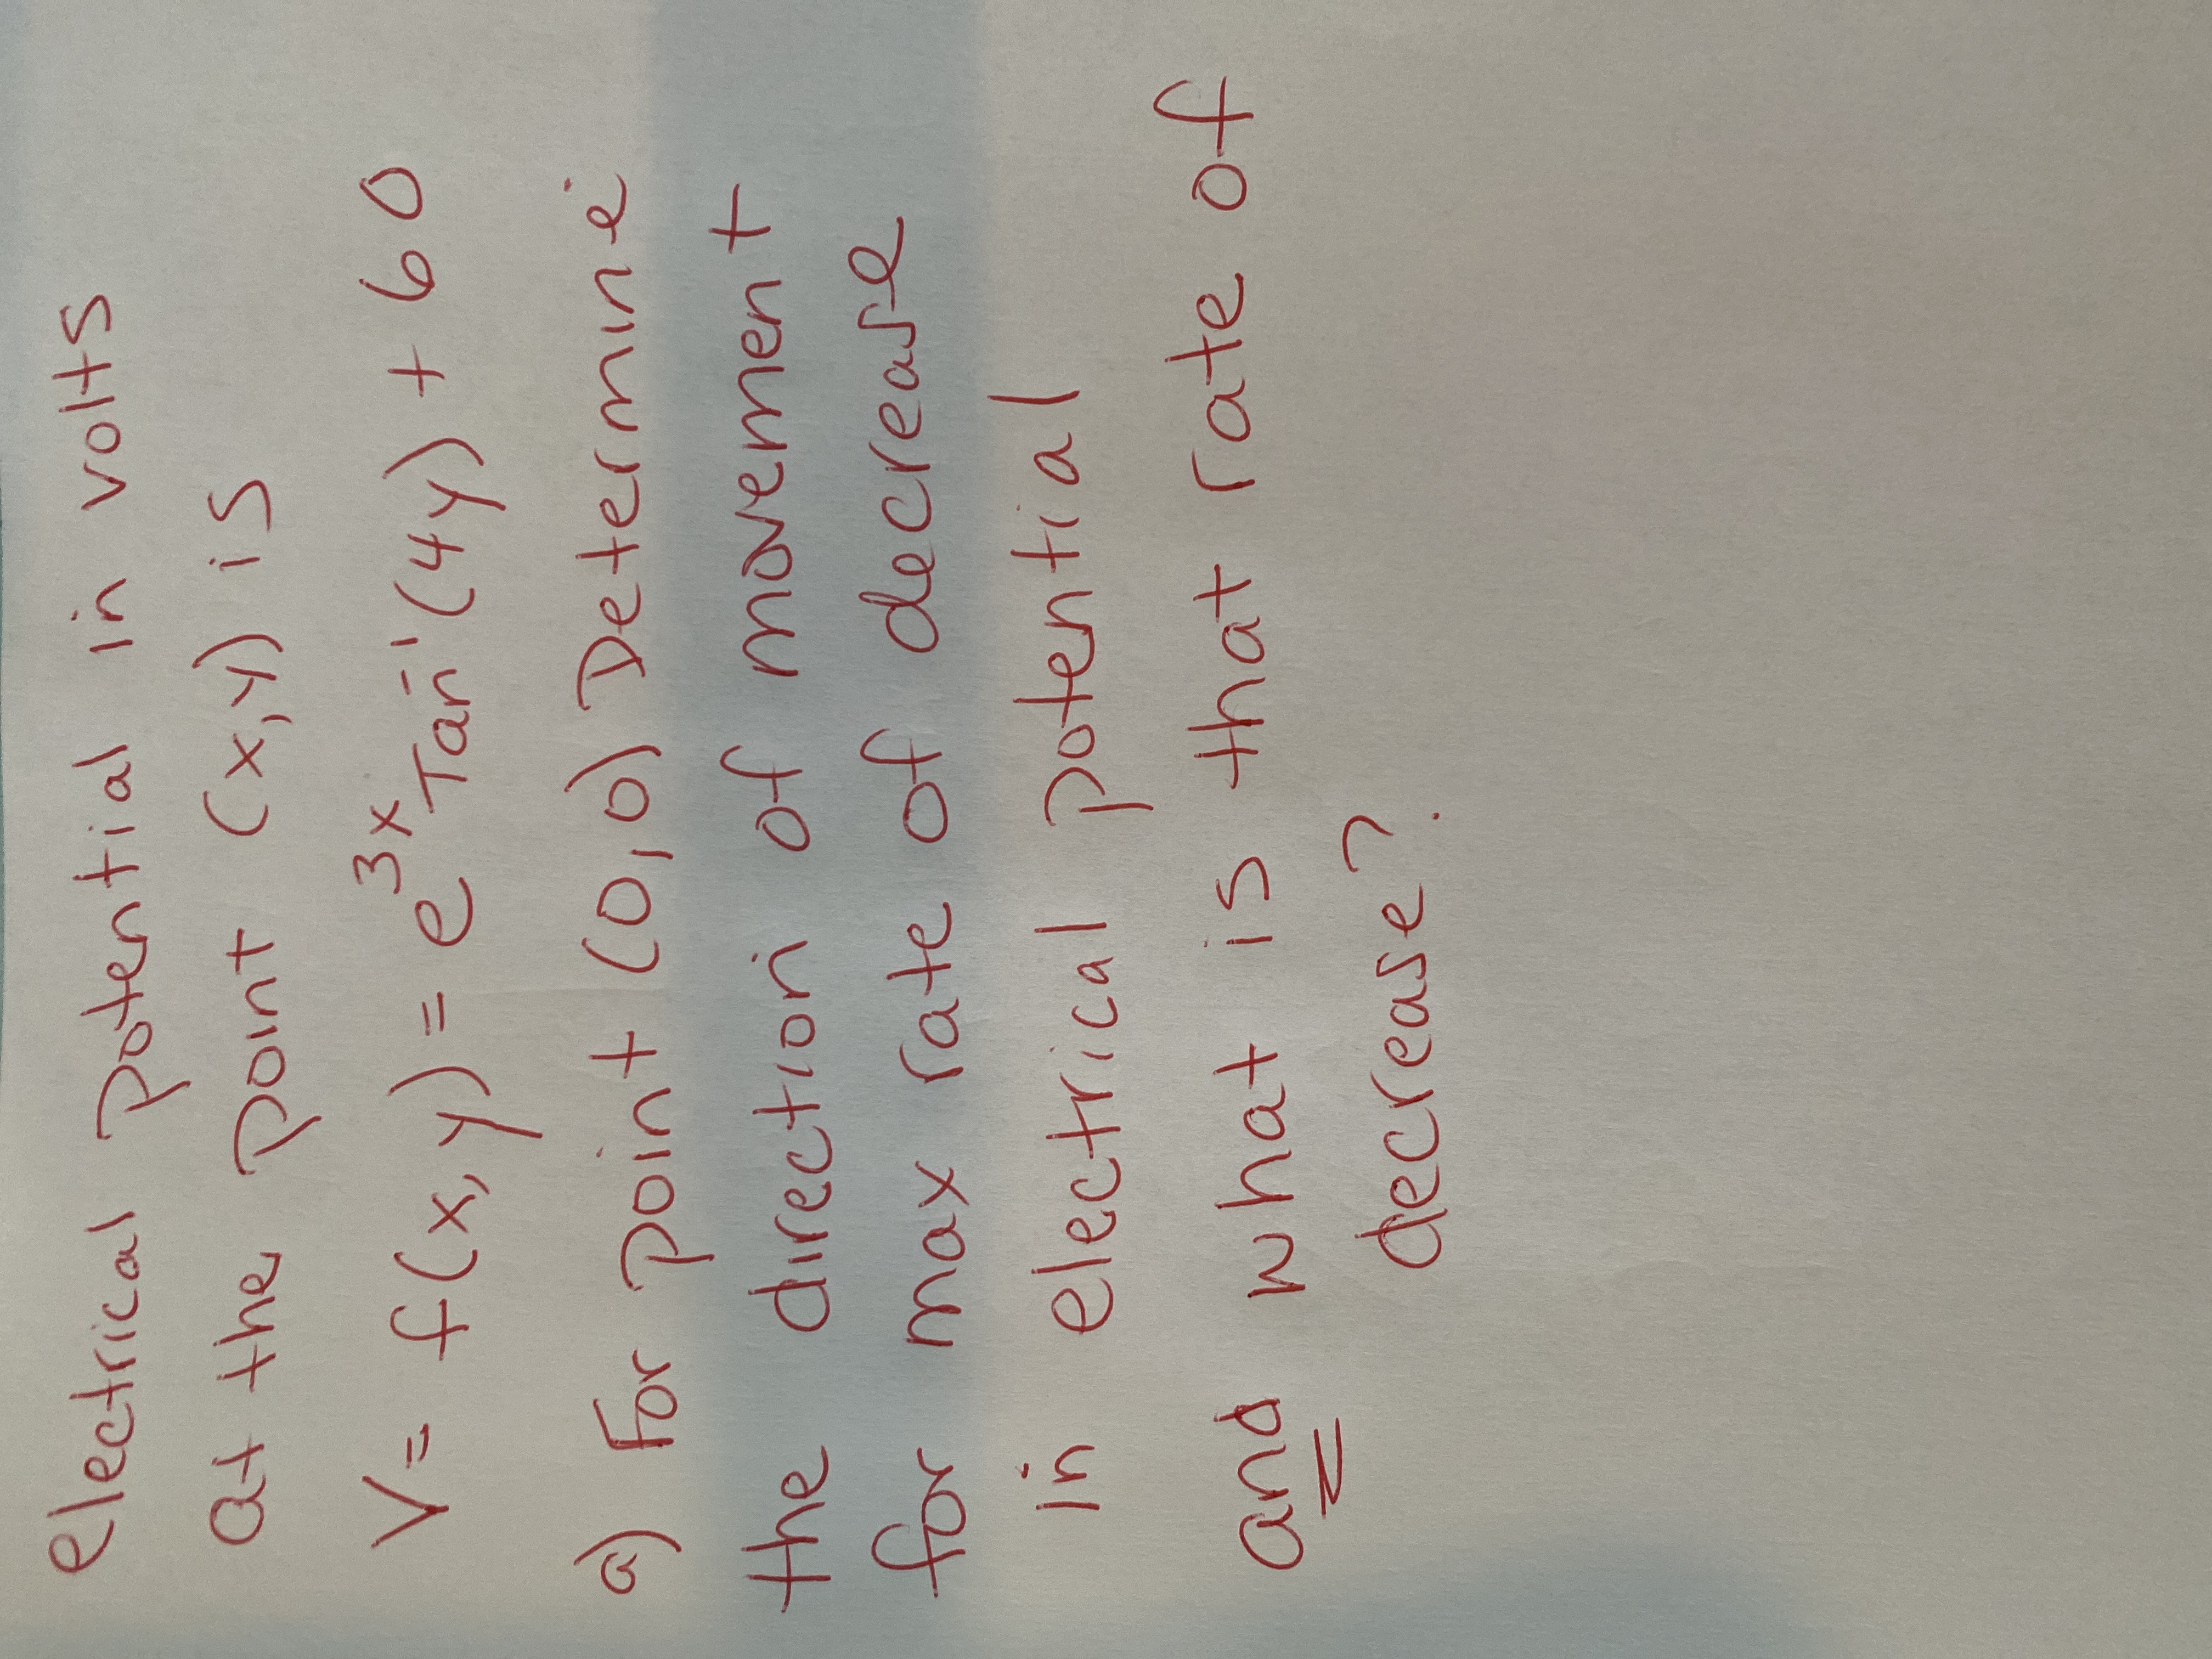 electrical potential in volts
at the point (x,y) is
V= f(x,y) = e³ˣ Tan⁻¹(4y) + 60
a) For point (0,0) Determine
the direction of movement
for max rate of decrease
in electrical potential
and what is that rate of
decrease?